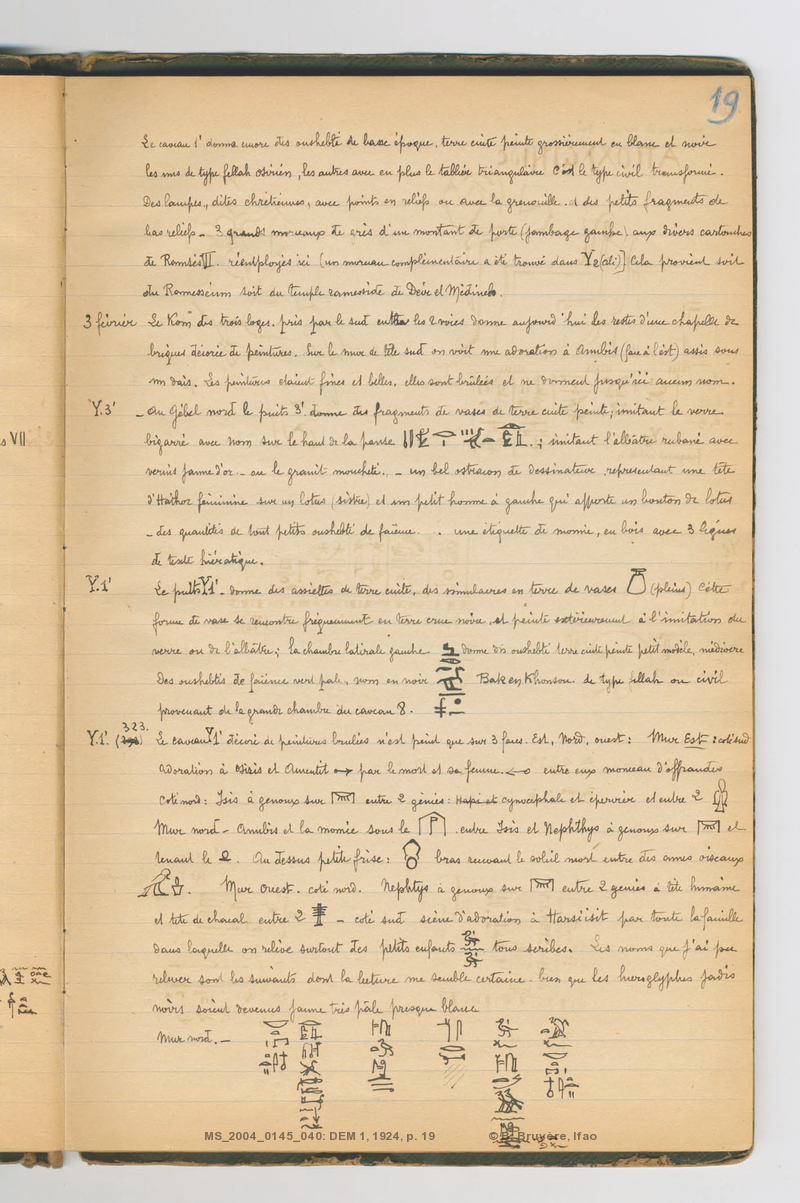 19
Le caveau 1' donne encore des oushebti de basse époque, terre cuite peinte grossièrement en blanc et noir
les uns de type fellah osirien, les autres avec en plus le tablier triangulaire c'est le type civil transformé.
Des lampes, dites chrétiennes, avec points en reliefs ou avec la grenouille. et des petits fragments de
bas reliefs _ 3 grands morceaux de grès d'une montant de porte (jambage gauche) aux divers cartouches
de Ramsès VI. réemployés ici [un morceau complémentaire a été trouvé dans Y2(ali)] Cela provient soit
du Ramesséum soit du temple ramesside de Deir el Médineh.
3 février Le Kom des trois loges. pris par le sud entre les 2 voies donne aujourd'hui les restes d'une chapelle de
briques décorée de peintures. Sur le mur de tête sud on voit une adoration à Anubis (face à l'est) assis sous
un dais. Les peintures étaient fines et belles, elles sont brûlées et ne donnent jusqu'ici aucun nom.
Y.3' _ Au Gébel nord le puits 3'. donne des fragments de vases de terre cuite peinte; imitant le verre
s VII
bigarré avec nom sur le haut de la panse ; imitant l'albâtre rubané avec
vernis jaune d'or _ ou le granit moucheté. _ un bel ostracon de dessinateur représentant une tête
d'Hathor féminine sur un lotus (sistre) et un petit homme à gauche qui apporte un bouton de lotus
_ des quantités de tout petits oushebti de faïence . . une étiquette de momie, en bois avec 3 lignes
de texte hiératique.
Y.1' Le puits Y1' _ donne des assiettes de terre cuite, des simulacres en terre de vases (pleins) Cette
forme de vase se rencontre fréquemment en terre crue noire, et peinte extérieurement à l'imitation du
verre ou de l'albâtre; la chambre latérale gauche donne des oushebti terre cuite peinte petit modèle, médiocre
Des oushebtis de faïence vert pale, nom en noir Bakenkhonsou. de type fellah ou civil
provenant de la grande chambre du caveau 8.
323.
Y.1'. Le caveau Y1' décoré de peintures brulées n'est peint que sur 3 faces. Est, Nord, ouest : Mur Est : coté sud
adoration à Osiris et Amentit → par le mort et sa femme ← entre eux monceau d'offrandes
coté nord : Isis à genoux sur entre 2 génies : Hapi et cynocéphale et épervier et entre 2
Mur nord _ Anubis et la momie sous le entre Isis et Nephthys à genoux sur et
tenant le . Au dessus petite frise : bras recevant le soleil mort entre des ames oiseaux
. Mur Ouest. coté nord. Nephtys à genoux sur entre 2 génies à tête humaine
et tete de chacal entre 2 _ coté sud scène d'adoration à Harsiisit par toute la famille
dans laquelle on relève surtout des petits enfants tous scribes. Les noms que j'ai pu
relever sont les suivants dont la lecture me semble certaine bien que les hiéroglyphes jadis
noirs soient devenus jaune très pâle presque blanc
Mur nord. _
MS_2004_0145_040: DEM 1, 1924, p. 19
© B. Bruyère, Ifao